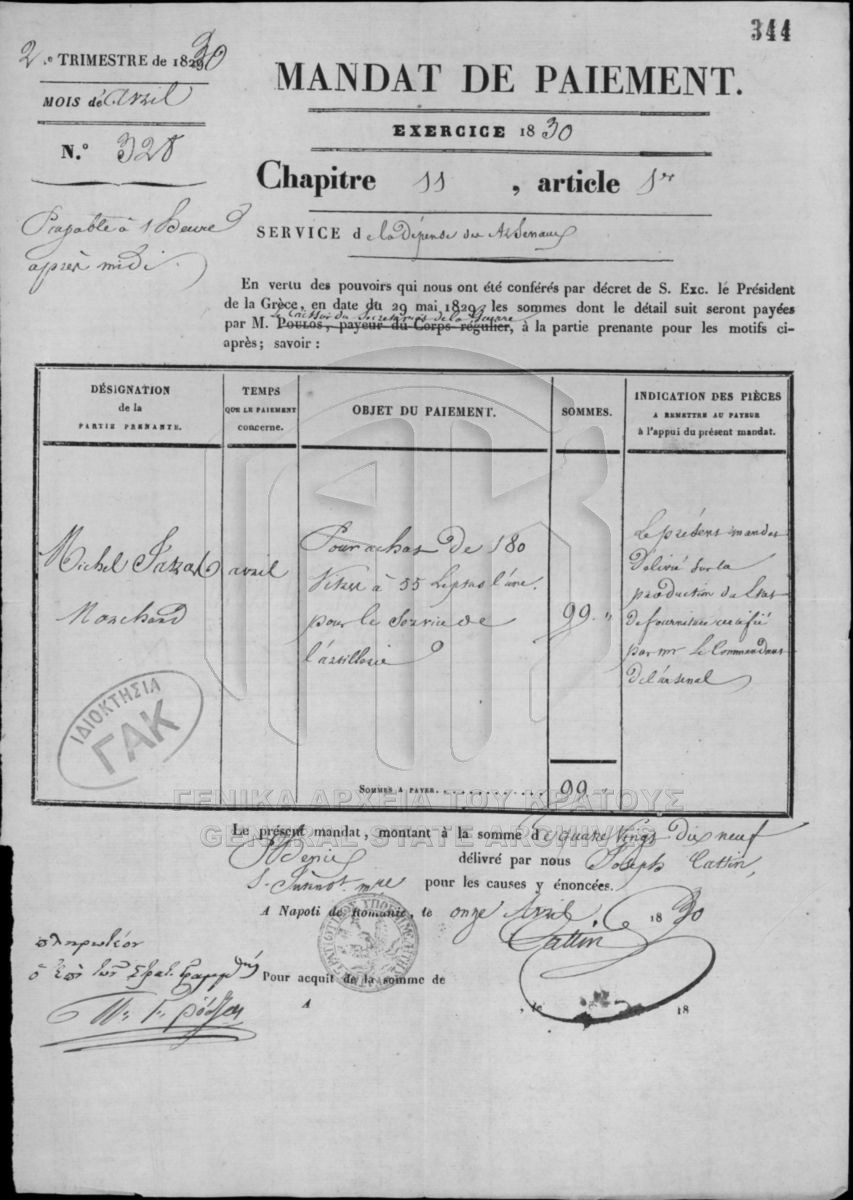 344
2.e TRIMESTRE de 1830
MOIS de avril
N.° 328
Payable à 1 heure
après midi.
MANDAT DE PAIEMENT.
EXERCICE 1830
Chapitre 11, article 1er
SERVICE de la Dépense des Arsenaux
En vertu des pouvoirs qui nous ont été conférés par décret de S. Exc. le Président
de la Grèce, en date du 29 mai 1829, les sommes dont le détail suit seront payées
le Caissier du Secrétariat de la Guerre
par M. POULOS, payeur du Corps régulier, à la partie prenante pour les motifs ci-
après; savoir :
DÉSIGNATION
de la
PARTIE PRENANTE.
TEMPS
QUE LE PAIEMENT
concerne.
OBJET DU PAIEMENT.
SOMMES.
INDICATION DES PIÈCES
A REMETTRE AU PAYEUR
à l'appui du présent mandat.
Michel
Marchand
avril
Pour achat de 180
à 55 Leptas l'une
pour le Service de
l'artillerie
99 "
Le présent mandat
délivré sur la
production du Etat
de fourniture certifié
par mr Le Commandant
de l'arsenal
SOMMES A PAYER. 99 "
ΙΔΙΟΚΤΗΣΙΑ
ΓΑΚ
ΓΕΝΙΚΑ ΑΡΧΕΙΑ ΤΟΥ ΚΡΑΤΟΥΣ
GENERAL STATE ARCHIVES
Le présent mandat, montant à la somme de quatre Vingt dix neuf
Phenix délivré par nous Joseph Cattin,
S. Intendt. mre pour les causes y énoncées.
A Napoli de Romanie, le onze Avril 1830
Cattin
πληρωτέον
ὁ ἐπὶ τῶν Στρατ.
Pour acquit de la somme de
A , le 18